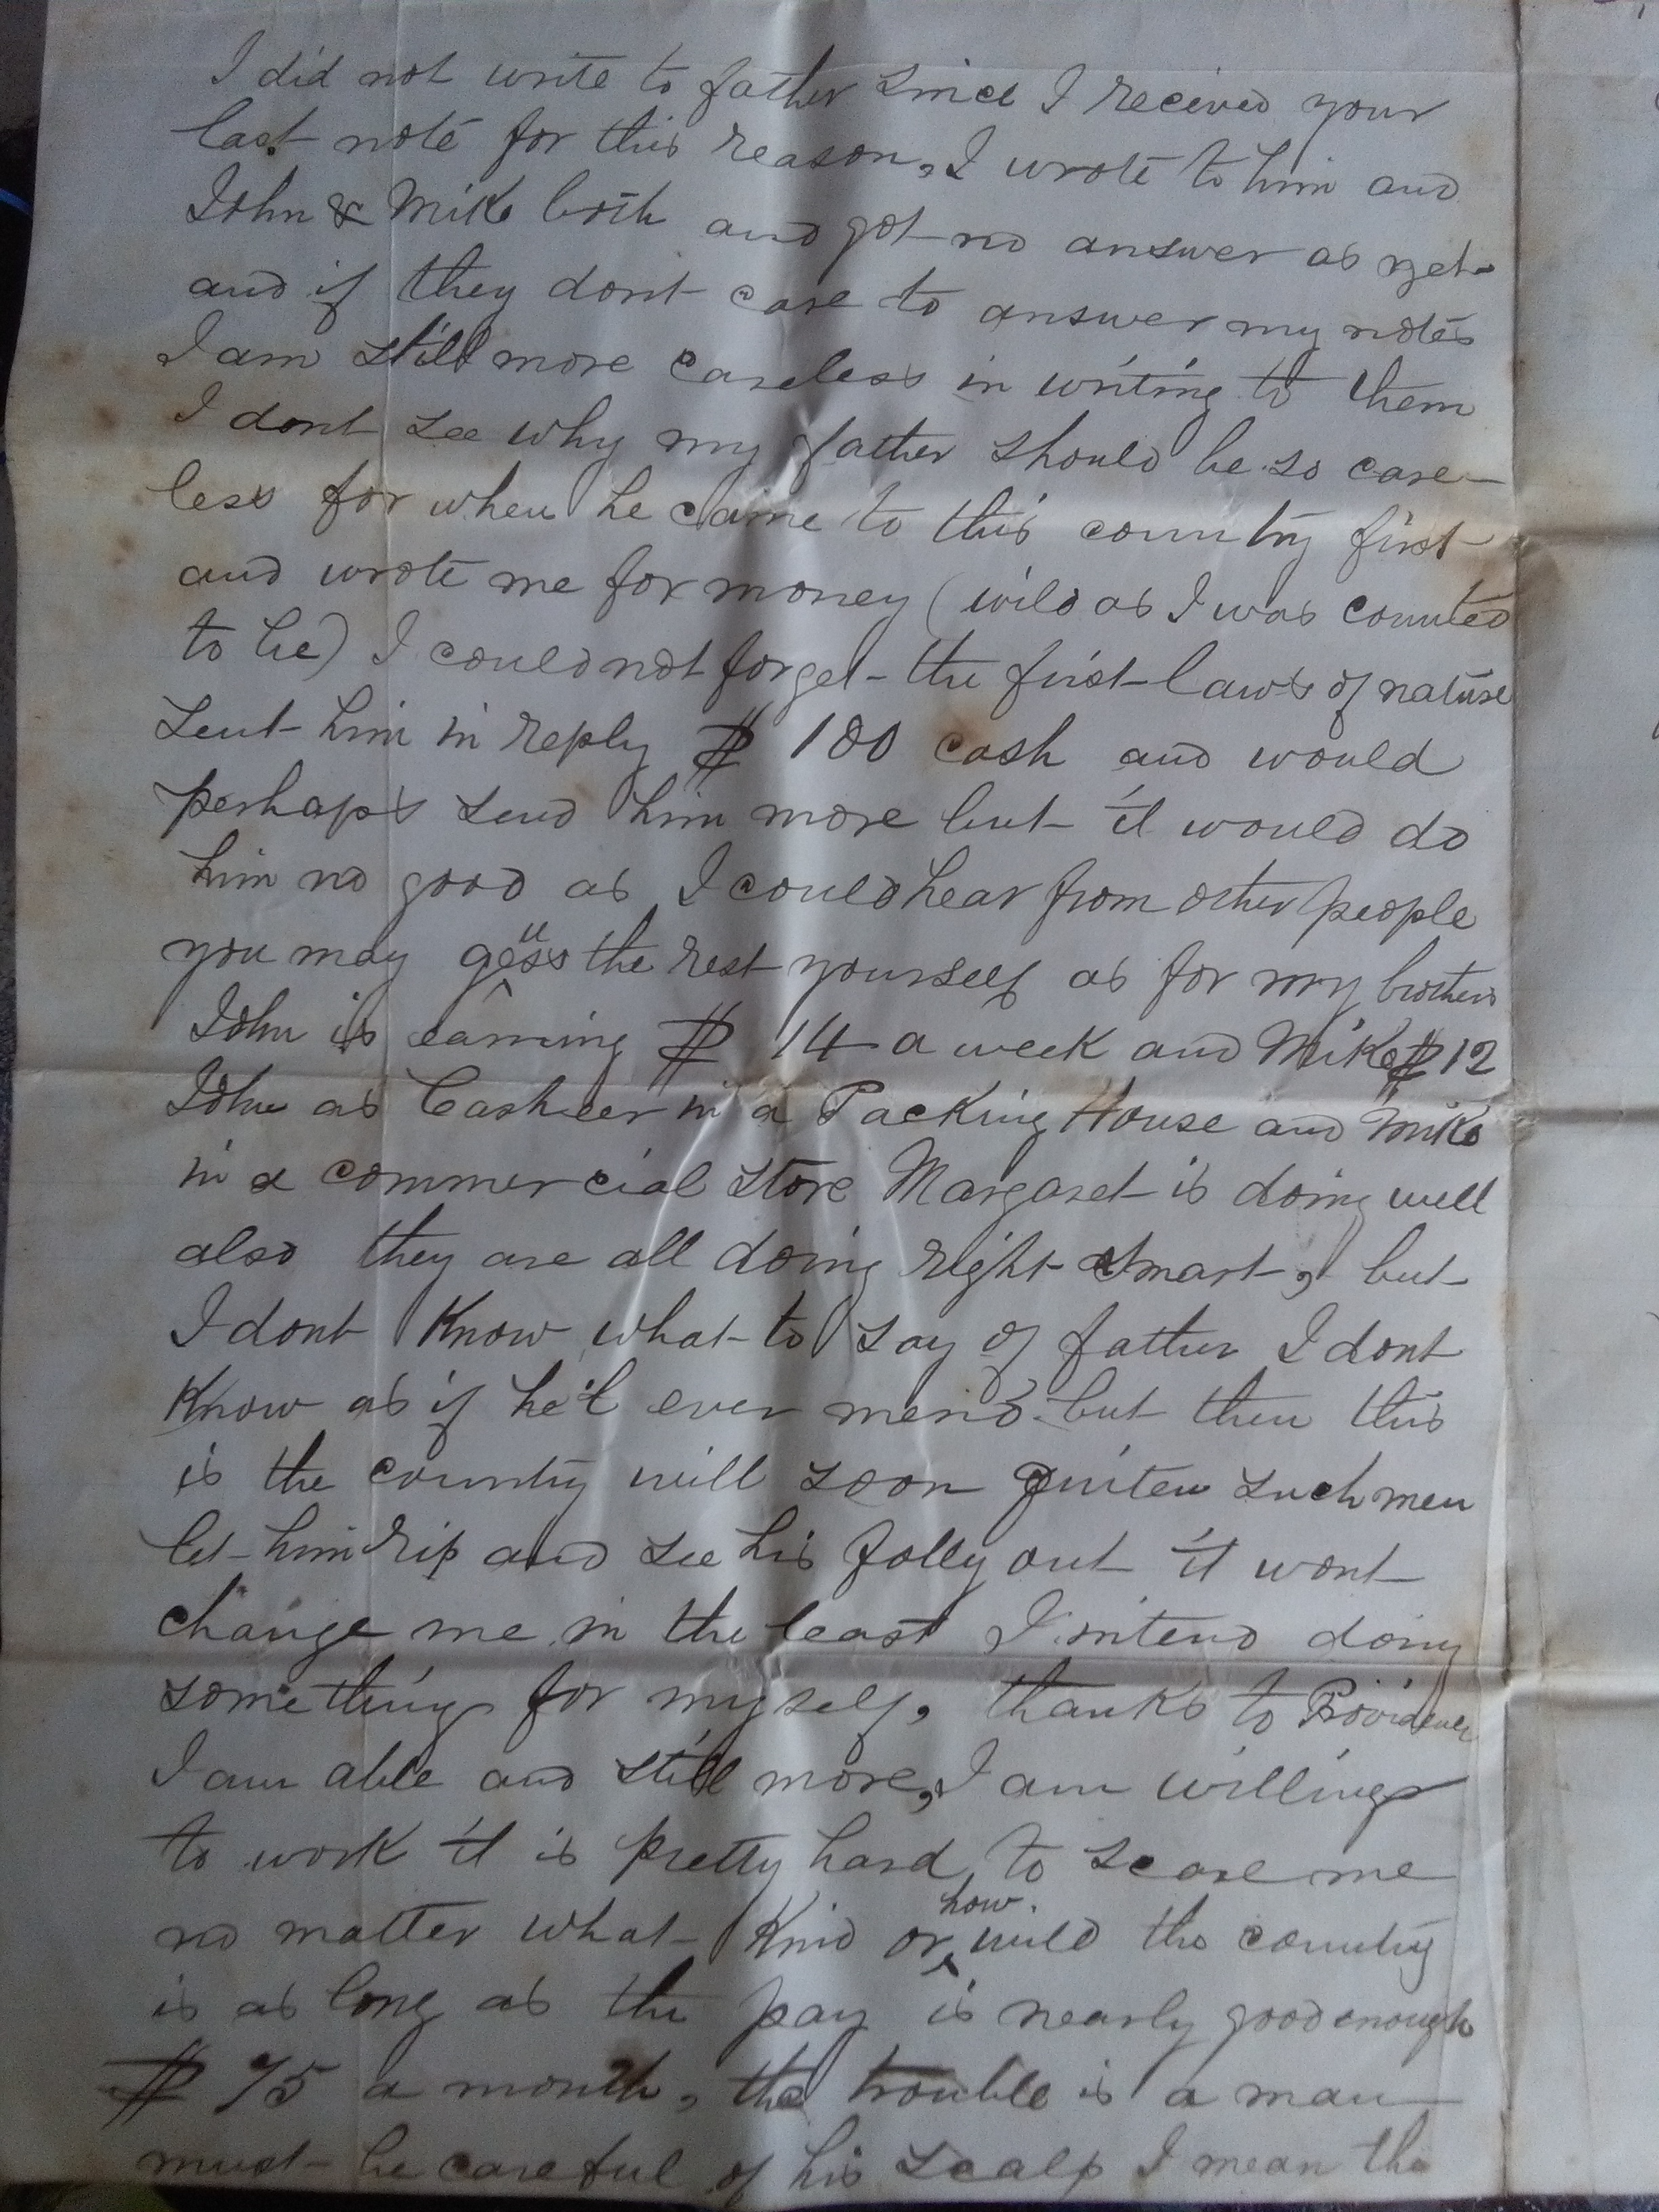 I did not write to father since I recived your
last note for this reason, I wrote to him and
John & Mike both and got no answer as yet
and if they dont care to answer my notes
I am still more careless in writing to them
I dont see why my father should be so care-
less for when he came to this country first
and wrote me for money (wild as I was counted
to be) I could not forget the first laws of nature
sent him in reply $ 100 cash and would
perhaps send him more but it would do
him no good as I could hear from other people
you may guess the rest yourself as for my brothers
John is earning $ 14 a week and Mike $ 12
John as Casheer in a Packing House and Mike
in a commercial store Margaret is doing well
also they are all doing right smart, but
I dont know what to say of father I dont
know as if he'l ever mend but then this
is the country will soon quiten such men
let him rip and see his folly out it wont
change me in the least I intend doing
something for myself, thanks to Providence
I am able and still more, I am willing
to work it is pretty hard to scare me
no matter what kind or how wild the country
is as long as the pay is nearly good enough
$ 75 a month, the trouble is a man
must be careful of his scalp I mean the